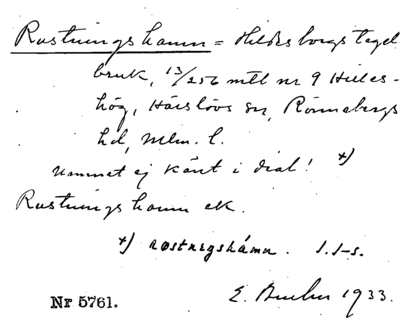 Rustningshamn = Hildesborgs tegel
bruk, 13/256 mtl nr 9 Hilles-
hög, Härslövs sn, Rönnebergs
hd, Mlm. l.
Namnet ej känt i dial! +)
Rustningshamn ek.
+) rostnıŋshámn. I. I-s.
E. 1933.
Nr 5761.